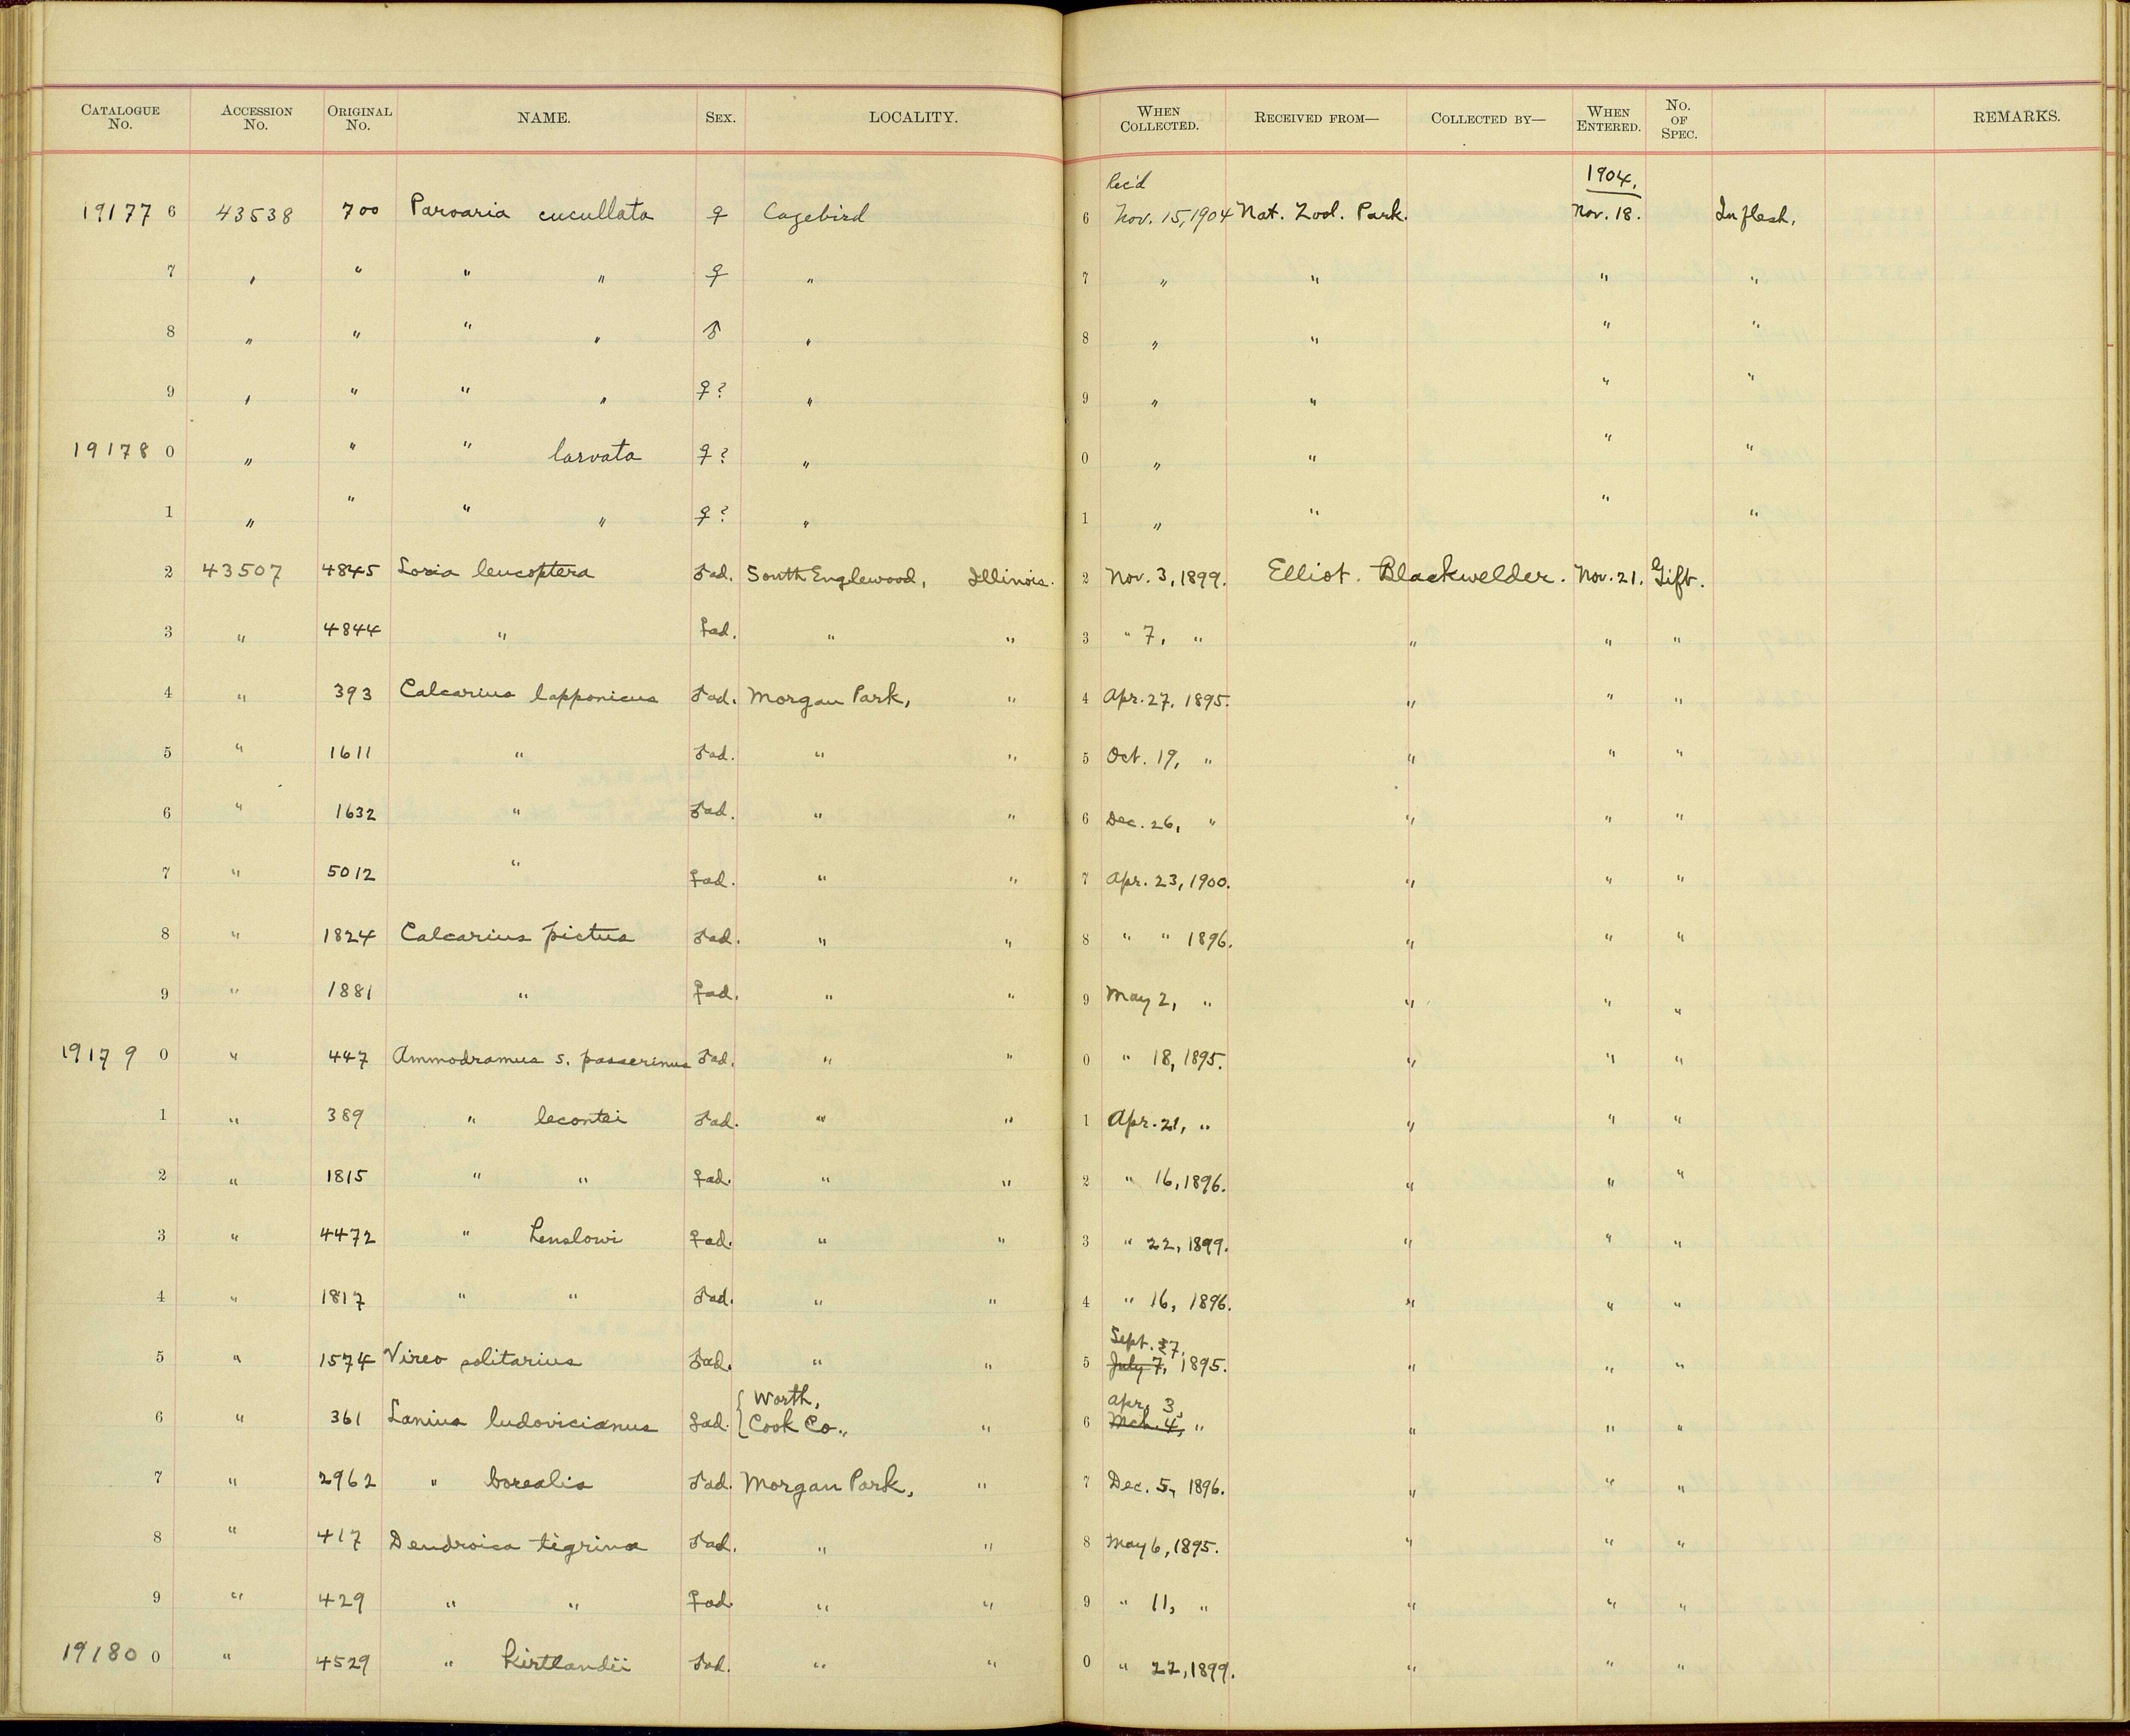 CATALOGUE No. ACCESSION No. ORIGINAL No. NAME. SEX. LOCALITY. WHEN COLLECTED. RECEIVED FROM— COLLECTED BY— WHEN ENTERED. No. OF SPEC. REMARKS.
Rec'd 1904.
19177 6 43538 700 Paroaria cucullata ♀ Cagebird 6 Nov. 15, 1904 Nat. Zool. Park. Nov. 18. In flesh.
7 " " " " ♀ " 7 " " " "
8 " " " " ♂ " 8 " " " "
9 " " " " ♀? " 9 " " " "
19178 0 " " " larvata ♀? " 0 " " " "
1 " " " " ♀? " 1 " " " "
2 43507 4845 Loxia leucoptera ♂ad. South Englewood, Illinois. 2 Nov. 3, 1899. Elliot. Blackwelder. Nov. 21. Gift.
3 " 4844 " ♀ad. " " 3 " 7, " " " "
4 " 393 Calcarius lapponicus ♂ad. Morgan Park, " 4 Apr. 27, 1895. " " "
5 " 1611 " ♂ad. " " 5 Oct. 19, " " " "
6 " 1632 " ♂ad. " " 6 Dec. 26, " " " "
7 " 5012 " ♀ad. " " 7 Apr. 23, 1900. " " "
8 " 1824 Calcarius pictus ♂ad. " " 8 " " 1896. " " "
9 " 1881 " ♀ad. " " 9 May 2, " " " "
19179 0 " 447 Ammodramus s. passerinus ♂ad. " " 0 " 18, 1895. " " "
1 " 389 " lecontei ♂ad. " " 1 Apr. 21, " " " "
2 " 1815 " " ♀ad. " " 2 " 16, 1896. " " "
3 " 4472 " henslowi ♀ad. " " 3 " 22, 1899. " " "
4 " 1817 " " ♂ad. " " 4 " 16, 1896. " " "
Sept. 27,
5 " 1574 Vireo solitarius ♂ad. " " 5 July 7, 1895. " " "
Worth, Apr. 3,
6 " 361 Lanius ludovicianus ♀ad. Cook Co., " 6 Mch. 4, " " " "
7 " 2962 " borealis ♂ad. Morgan Park, " 7 Dec. 5, 1896. " " "
8 " 417 Dendroica tigrina ♂ad. " " 8 May 6, 1895. " " "
9 " 429 " " ♀ad " " 9 " 11, " " " "
19180 0 " 4529 " kirtlandii ♂ad. " " 0 " 22, 1899. " " "